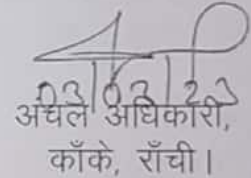 03/03/23
अंचल अधिकारी,
काँके, राँची।